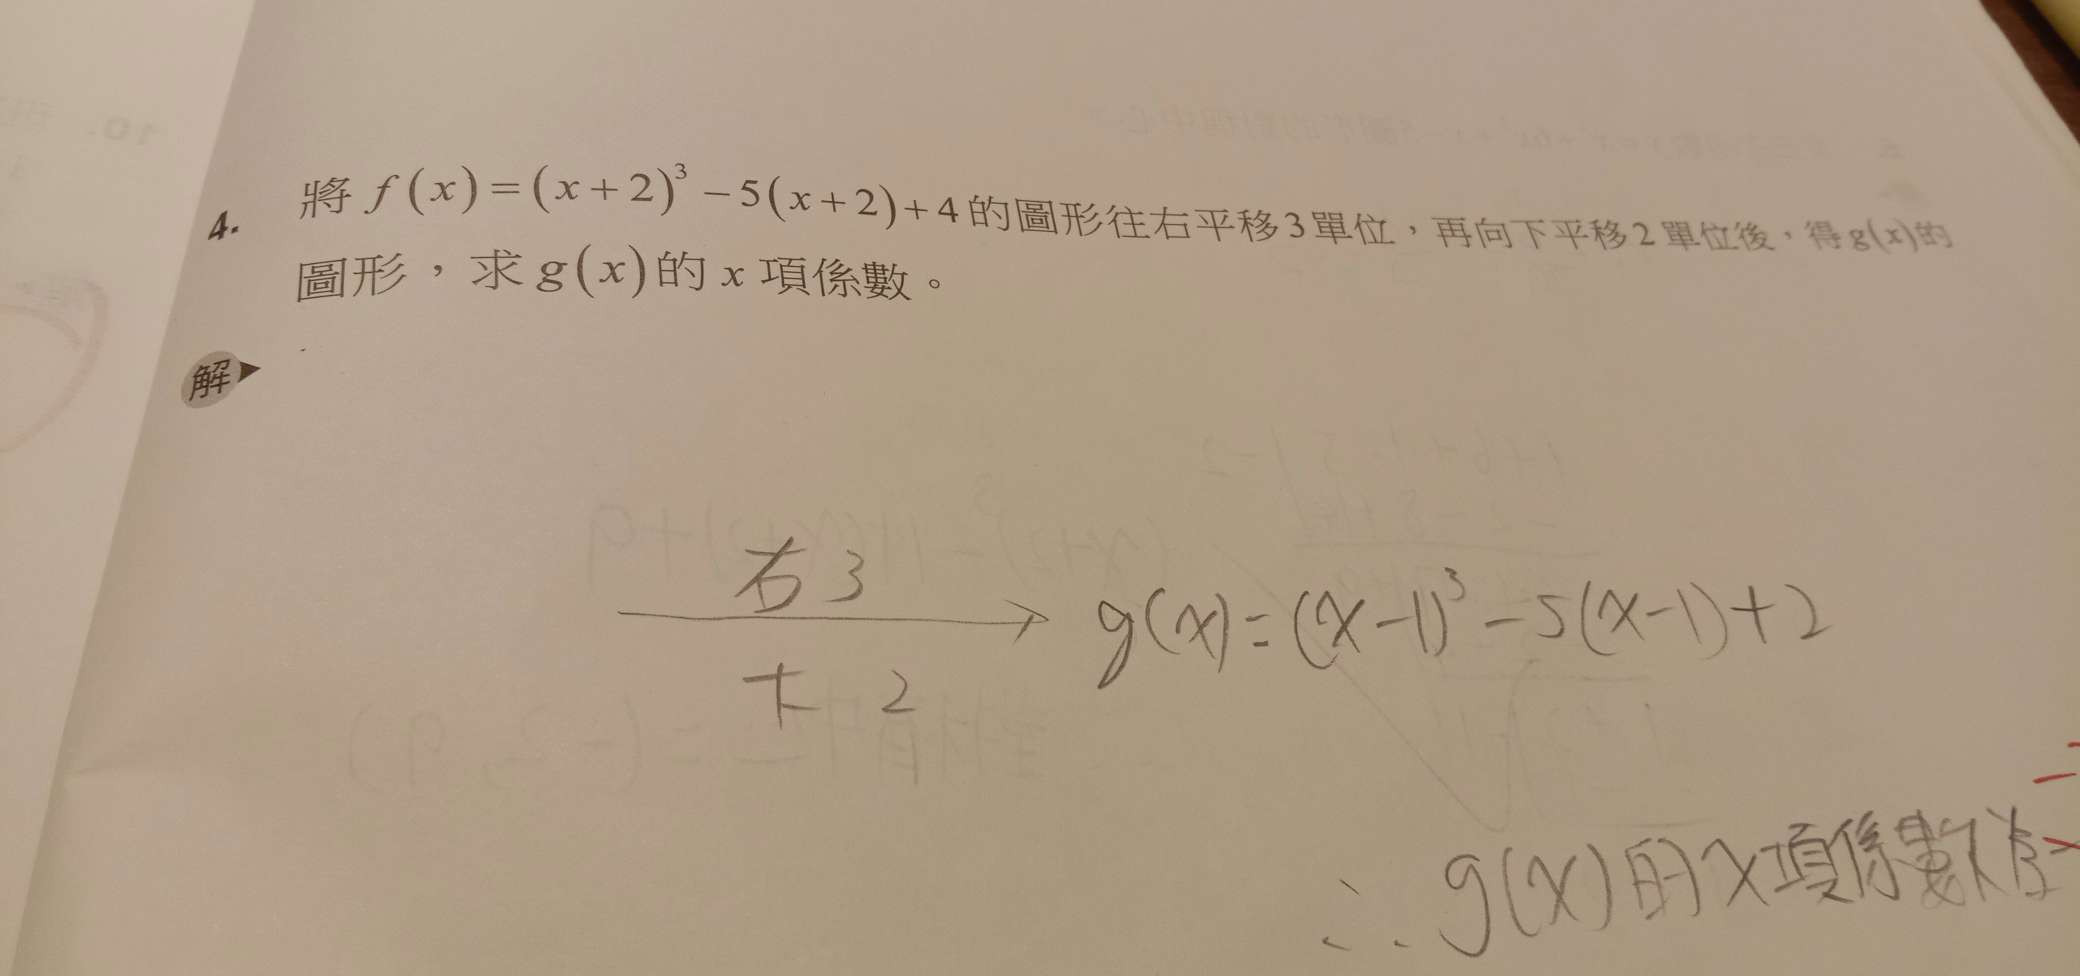 4. 將 f(x)=(x+2)³-5(x+2)+4的圖形往右平移3單位，再向下平移2單位後，得g(x)的
圖形，求g(x)的x項係數。
解
右3
下 2
g(x)=(x-1)³-5(x-1)+2
∴g(x)的x項係數為-